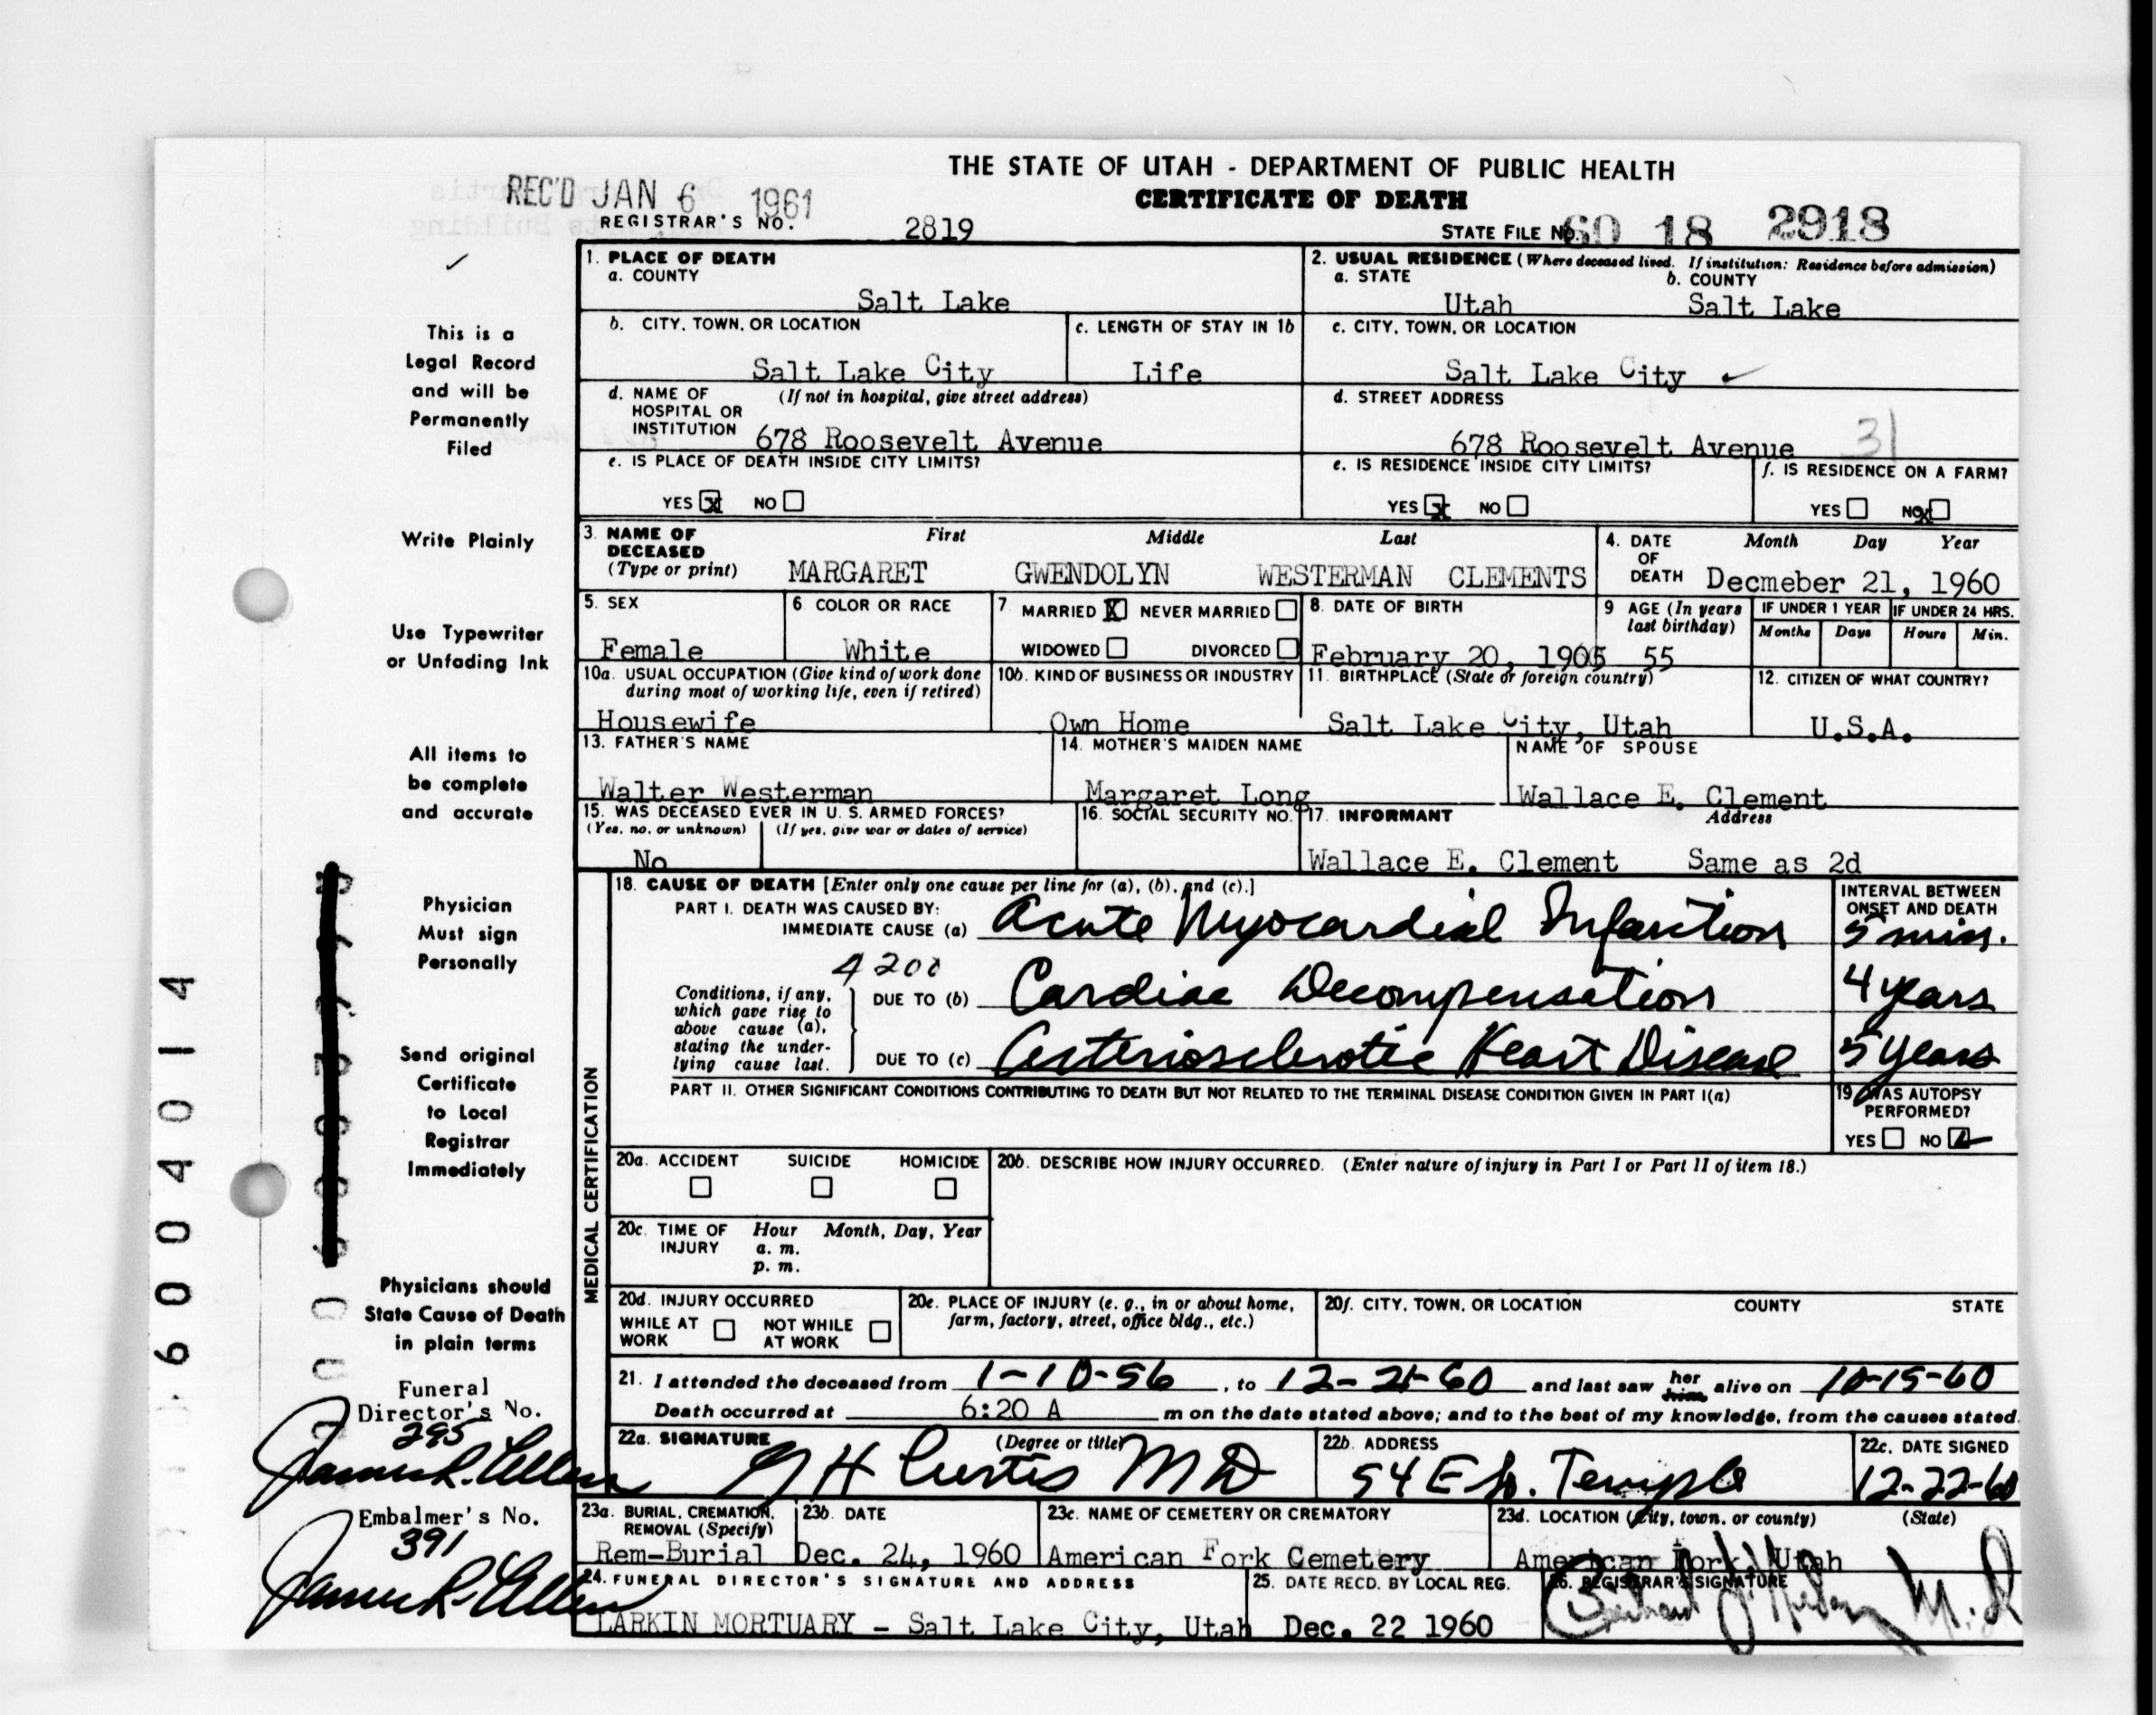 THE STATE OF UTAH - DEPARTMENT OF PUBLIC HEALTH
CERTIFICATE OF DEATH
REC'D JAN 6 1961
REGISTRAR'S NO. 2819
STATE FILE NO. 60 18 2918
1. PLACE OF DEATH
a. COUNTY
Salt Lake
2. USUAL RESIDENCE (Where deceased lived. If institution: Residence before admission)
a. STATE b. COUNTY
Utah Salt Lake
b. CITY, TOWN, OR LOCATION
Salt Lake City
c. LENGTH OF STAY IN 1b
Life
c. CITY, TOWN, OR LOCATION
Salt Lake City
d. NAME OF (If not in hospital, give street address)
HOSPITAL OR
INSTITUTION 678 Roosevelt Avenue
d. STREET ADDRESS
678 Roosevelt Avenue 31
e. IS PLACE OF DEATH INSIDE CITY LIMITS?
YES x NO
e. IS RESIDENCE INSIDE CITY LIMITS?
YES x NO
f. IS RESIDENCE ON A FARM?
YES NO x
3. NAME OF DECEASED (Type or print)
First Middle Last
MARGARET GWENDOLYN WESTERMAN CLEMENTS
4. DATE OF DEATH
Month Day Year
Decmeber 21, 1960
5. SEX
Female
6. COLOR OR RACE
White
7. MARRIED X NEVER MARRIED
WIDOWED DIVORCED
8. DATE OF BIRTH
February 20, 1905
9. AGE (In years last birthday)
55
IF UNDER 1 YEAR
Months Days
IF UNDER 24 HRS.
Hours Min.
10a. USUAL OCCUPATION (Give kind of work done
during most of working life, even if retired)
Housewife
10b. KIND OF BUSINESS OR INDUSTRY
Own Home
11. BIRTHPLACE (State or foreign country)
Salt Lake City, Utah
12. CITIZEN OF WHAT COUNTRY?
U.S.A.
13. FATHER'S NAME
Walter Westerman
14. MOTHER'S MAIDEN NAME
Margaret Long
NAME OF SPOUSE
Wallace E. Clement
15. WAS DECEASED EVER IN U. S. ARMED FORCES?
(Yes, no, or unknown) (If yes, give war or dates of service)
No
16. SOCIAL SECURITY NO.
17. INFORMANT Address
Wallace E. Clement Same as 2d
MEDICAL CERTIFICATION
18. CAUSE OF DEATH [Enter only one cause per line for (a), (b), and (c).]
PART I. DEATH WAS CAUSED BY:
IMMEDIATE CAUSE (a) Acute Myocardial Infarction
INTERVAL BETWEEN
ONSET AND DEATH
5 min.
4200
Conditions, if any,
which gave rise to
above cause (a),
stating the under-
lying cause last.
DUE TO (b) Cardiac Decompensation
4 years
DUE TO (c) Arteriosclerotic Heart Disease
5 years
PART II. OTHER SIGNIFICANT CONDITIONS CONTRIBUTING TO DEATH BUT NOT RELATED TO THE TERMINAL DISEASE CONDITION GIVEN IN PART I(a)
19. WAS AUTOPSY
PERFORMED?
YES NO
20a. ACCIDENT SUICIDE HOMICIDE
20b. DESCRIBE HOW INJURY OCCURRED. (Enter nature of injury in Part I or Part II of item 18.)
20c. TIME OF INJURY
Hour Month, Day, Year
a. m.
p. m.
20d. INJURY OCCURRED
WHILE AT WORK NOT WHILE AT WORK
20e. PLACE OF INJURY (e. g., in or about home,
farm, factory, street, office bldg., etc.)
20f. CITY, TOWN, OR LOCATION COUNTY STATE
21. I attended the deceased from 1-10-56, to 12-21-60 and last saw her him alive on 10-15-60
Death occurred at 6:20 A m on the date stated above; and to the best of my knowledge, from the causes stated.
22a. SIGNATURE (Degree or title)
H Curtis MD
22b. ADDRESS
54 E So. Temple
22c. DATE SIGNED
12-22-60
23a. BURIAL, CREMATION,
REMOVAL (Specify)
Rem-Burial
23b. DATE
Dec. 24, 1960
23c. NAME OF CEMETERY OR CREMATORY
American Fork Cemetery
23d. LOCATION (City, town, or county) (State)
American Fork, Utah
24. FUNERAL DIRECTOR'S SIGNATURE AND ADDRESS
LARKIN MORTUARY - Salt Lake City, Utah
25. DATE RECD. BY LOCAL REG.
Dec. 22 1960
26. REGISTRAR'S SIGNATURE
M.D
This is a
Legal Record
and will be
Permanently
Filed
Write Plainly
Use Typewriter
or Unfading Ink
All items to
be complete
and accurate
Physician
Must sign
Personally
Send original
Certificate
to Local
Registrar
Immediately
Physicians should
State Cause of Death
in plain terms
Funeral
Director's No.
295
James R. Allen
Embalmer's No.
391
James R. Allen
6004014